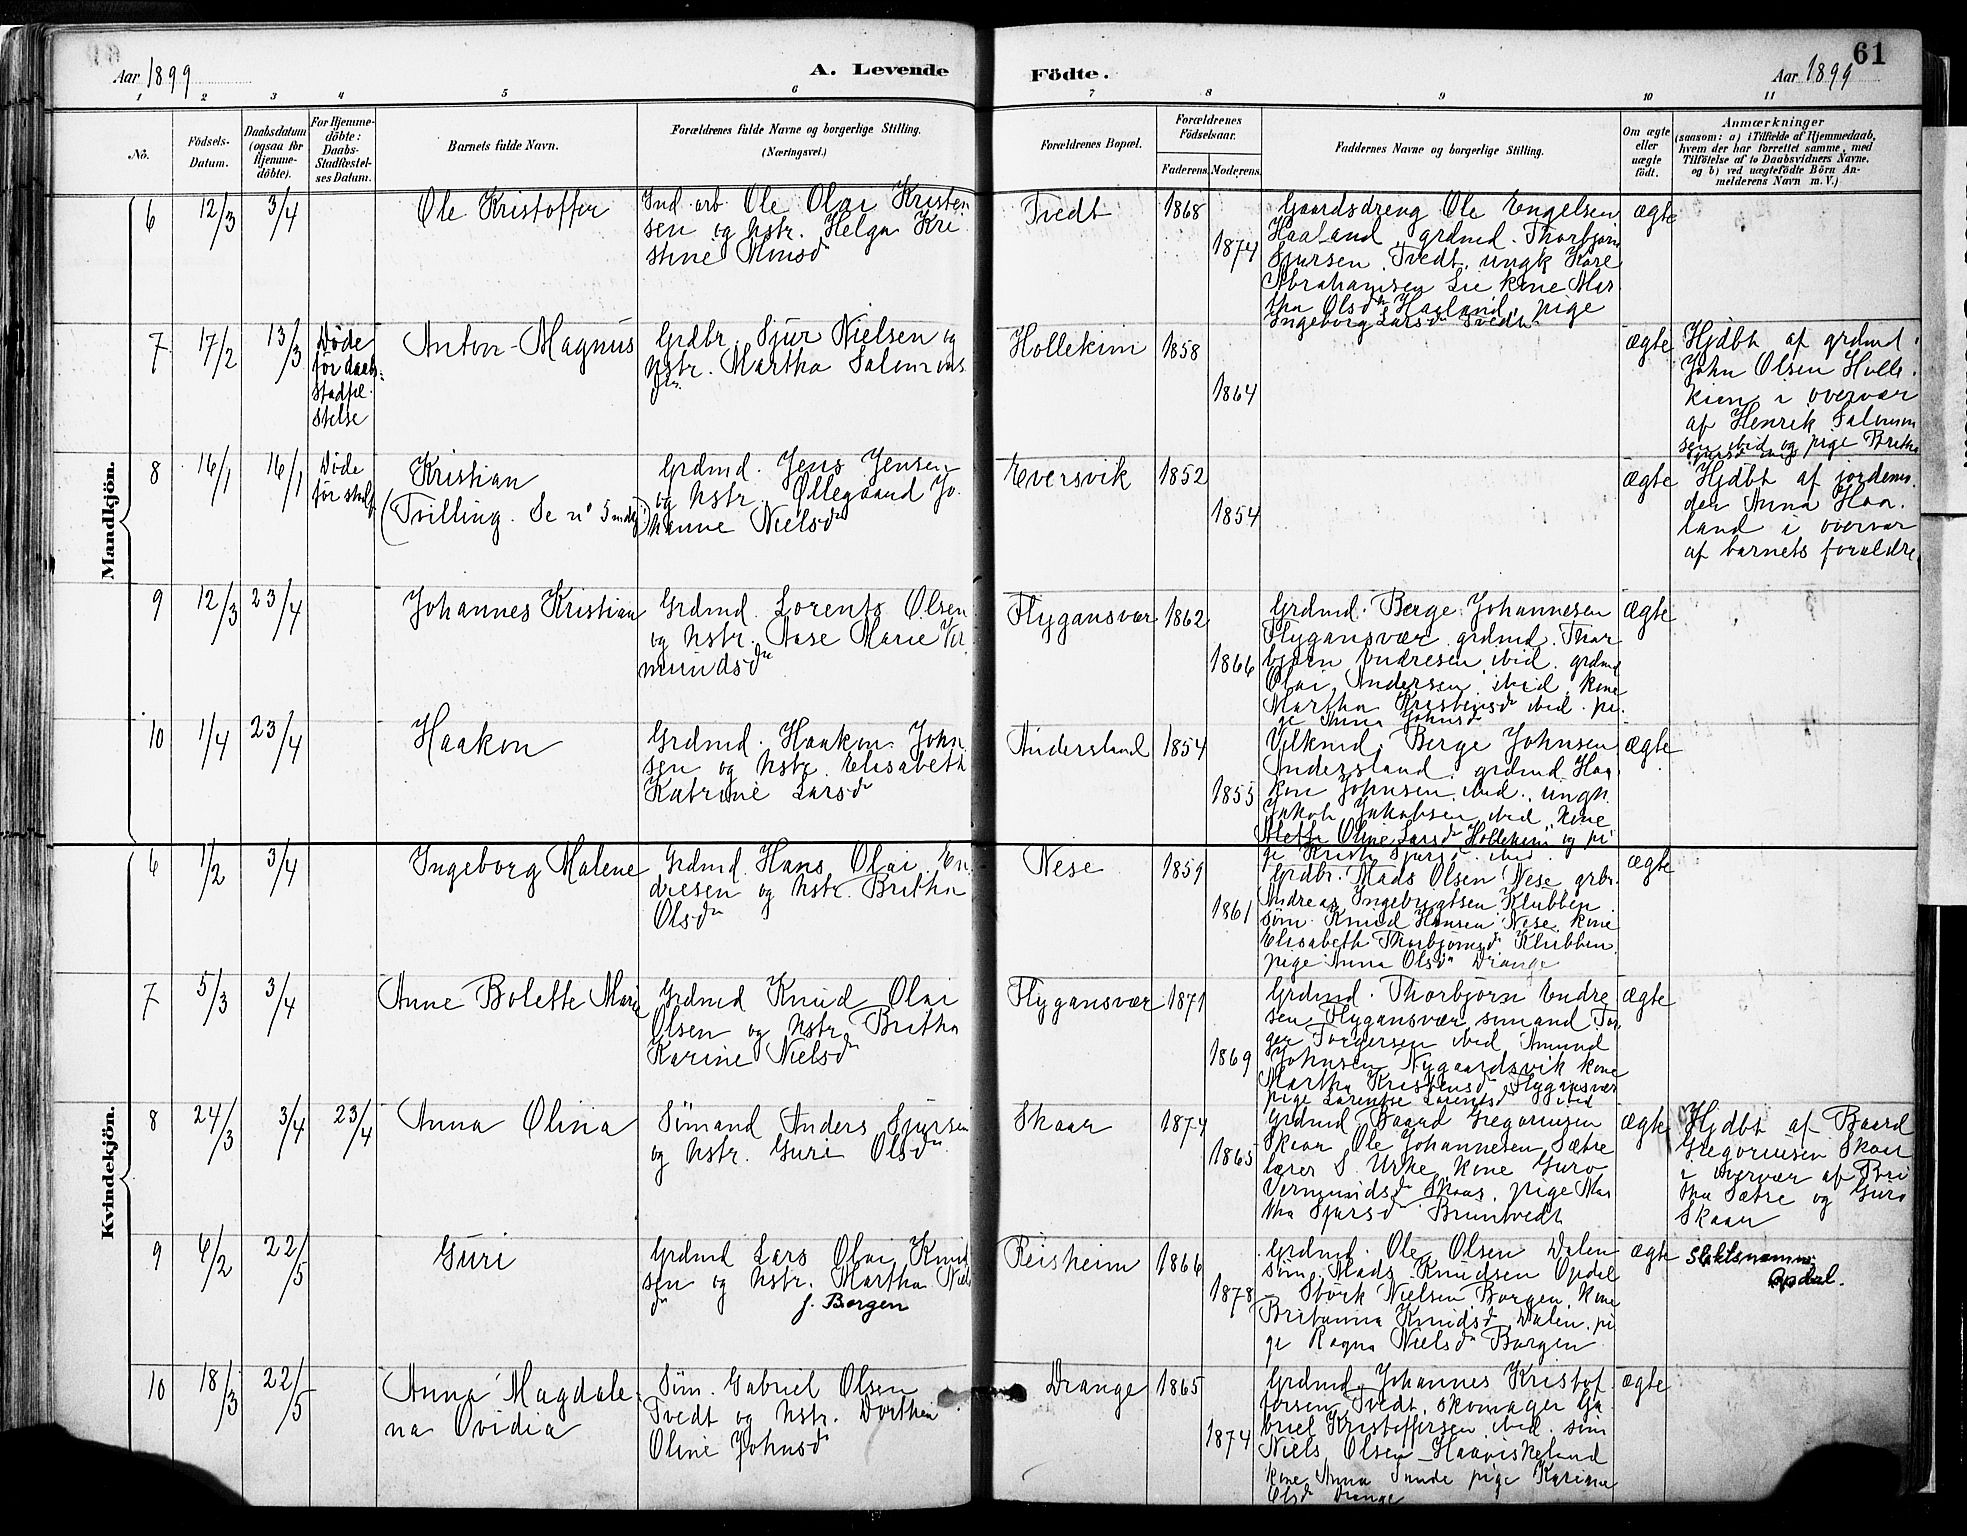 61
Aar 1899
A. Levende
Födte.
Aar 1899
1 2 3 4 5 6 7 8 9 10 11
No.
Födsels-
Datum.
Daabsdatum
(ogsaa for
Hjemme-
döbte).
For Hjemme-
döbte:
Daabs-
Stadfestel-
ses Datum.
Barnets fulde Navn.
Forældrenes fulde Navne og borgerlige Stilling.
(Næringsvei.)
Forældrenes Bopæl.
Forældrenes
Födselsaar.
Faderens.
Moderens.
Faddernes Navne og borgerlige Stilling.
Om ægte
eller
uægte
født.
Anmærkninger
(saasom: a) i Tilfælde af Hjemmedaab,
hvem der har forrettet samme, med
Tilföielse af to Daabsvidners Navne,
og b) ved uægtefödte Börn An-
melderens Navn m. V.)
Mandkjön.
6
12/3
3/4
Ole Kristoffer
Ind. arb. Ole Olai Kristen
sen og hstr. Helga Kri
stine Monsdr
Tvedt
1868
1874
Gaardsdreng Ole Engelsen
Haaland, grdmd. Thorbjørn
Sjursen Tvedt, ungk Kore
Abrahamsen Lie kone Mar
tha Olsdr Haaland, pige
Ingeborg Larsdr Tvedt
ægte
7
17/2
13/3
Døde
før daab-
stadfæ-
stelse
Anton Magnus
Grdbr. Sjur Nielsen og
hstr. Martha Salomons
dr.
Hollekim
1858
1864
ægte
Hjdbt af grdmd.
John Olsen Holle-
kim i overvær
af Henrik Salomon
sen ibid og pige Britha
8
16/1
16/1
Døde
før stadf
Kristian
(Tvilling. Se no 5 mdkj)
Grdmd. Jens Jensen
og hstr. Øllegaard Jo-
hanne Nielsdr
Eversvik
1852
1854
ægte
Hjdbt af jordemo-
der Anna Haa-
land i overvær
af barnets forældre
9
12/3
23/4
Johannes Kristian
Grdmd. Lorents Olsen
og hstr. Aase Marie Ver
mundsdr
Flygansvær
1862
1866
Grdmd. Berge Johannesen
Flygansvær grdmd. Thor
bjørn Endresen ibid. grdmd
Olai Andersen ibid. kone
Martha Kristensdr ibid. pi-
ge Anna Johnsdr
ægte
10
1/4
23/4
Haakon
Grdmd. Haakon John
sen og hstr. Elisabeth
Katrine Larsdr
Andersland
1854
1855
Vilkmd. Berge Johnsen
Andersland, grdmd. Haa-
kon Johnsen ibid., ungk.
Jakob Jakobsen ibid, kone
Mette Oline Larsdr Hollekim og pi
ge Kristi Sjursdr ibid.
ægte
Kvindekjön.
6
1/2
3/4
Ingeborg Malene
Grdmd. Hans Olai En
dresen og hstr. Britha
Olsdr
Nese
1859
1861
Grdbr. Mads Olsen Nese grbr.
Andreas Ingebrigtsen Klubben
søm. Knud Hansen Nese kone
Elisabeth Thorbjørnsdr Klubben,
pige Anna Olsdr Drange
ægte
7
5/3
3/4
Anne Bolette Marie
Grdmd Knud Olai
Olsen og hstr Britha
Karine Nielsdr
Flygansvær
1871
1869
Grdmd. Thorbjørn Endre
sen Flygansvær, sømand Tor
ger Torgersen ibid Amund
Johnsen Nygaardsvik kone
Martha Kristensdr Flygansvær
pige Lorentse Lorentsdr ibid
ægte
8
24/3
3/4
23/4
Anna Olina
Sømand Anders Sjursen
og hstr. Guri Olsdr
Skaar
1874
1865
Grdmd Baard Gregoriusen
Skaar Ole Johannesen Sætre
lærer S. Urke, kone Guro
Vermundsdr Skaar, pige Mar
tha Sjursdr Bruntvedt
ægte
Hjdbt af Baard
Gregoriusen Skaar
i overvær af Bri
tha Sætre og Guro
Skaar
9
6/2
22/5
Guri
Grdmd Lars Olai Knud
sen og hstr. Martha Niels
dr
f. Borgen
Reisheim
1866
1878
Grdmd. Ole Olsen Dalen
søm. Mads Knudsen Opdal
Stork Nielsen Borgen, kone
Britanna Knudsdr Dalen. pi
ge Ragna Nielsdr Borgen
ægte
Slektsnamn:
Opdal.
10
18/3
22/5
Anna Magdale-
na Ovidia
Søm. Gabriel Olsen
Tvedt og hstr. Dorthea
Oline Johnsdr
Drange
1865
1874
Grdmd. Johannes Kristof
fersen Tvedt, skomager Ga-
briel Kristoffersen ibid. søm
Niels Olsen Haaviskeland
kone Anna Tunde pige Karianne
Olsdr Drange
ægte